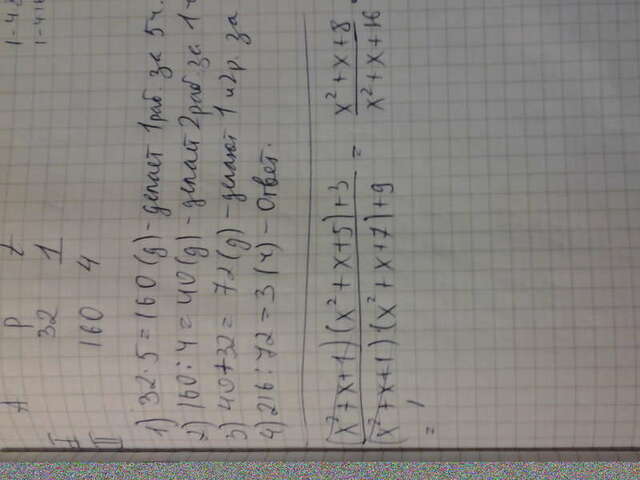 A P t
I 32 1
II 160 4
1) 32·5=160(д)-делает 1раб. за 5ч.
2) 160:4=40(д)-делает 2раб. за 1ч
3) 40+32=72(д)-делают 1 и 2р. за
4) 216:72=3(ч)-Ответ.
(x²+x+1)(x²+x+5)+3 = x²+x+8
(x²+x+1)(x²+x+7)+9 x²+x+16
=